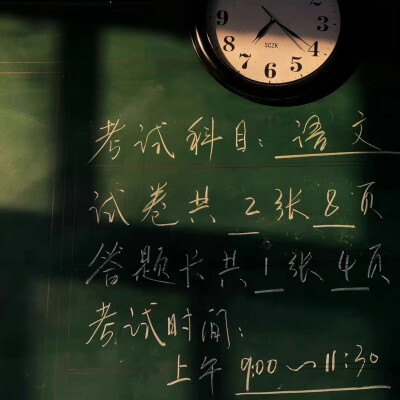 9 8 7 6 5 4 3
SCZK
考试科目: 语文
试卷共2张8页
答题卡共1张4页
考试时间:
上午 9:00~11:30